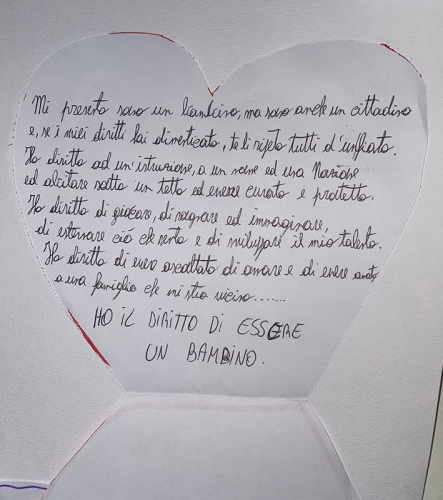 Mi presento sono un bambino, ma sono anche un cittadino
e, se i miei diritti hai dimenticato, te li ripeto tutti d'un fiato.
Ho diritto ad un'istruzione, a un nome ed una Nazione
ed abitare sotto un tetto ed essere curato e protetto.
Ho diritto di giocare, di sognare ed immaginare,
di esternare ciò che sento e di sviluppare il mio talento.
Ho diritto di essere ascoltato di amare e di essere amato
a una famiglia che mi stia vicino.......
HO IL DIRITTO DI ESSERE
UN BAMBINO.